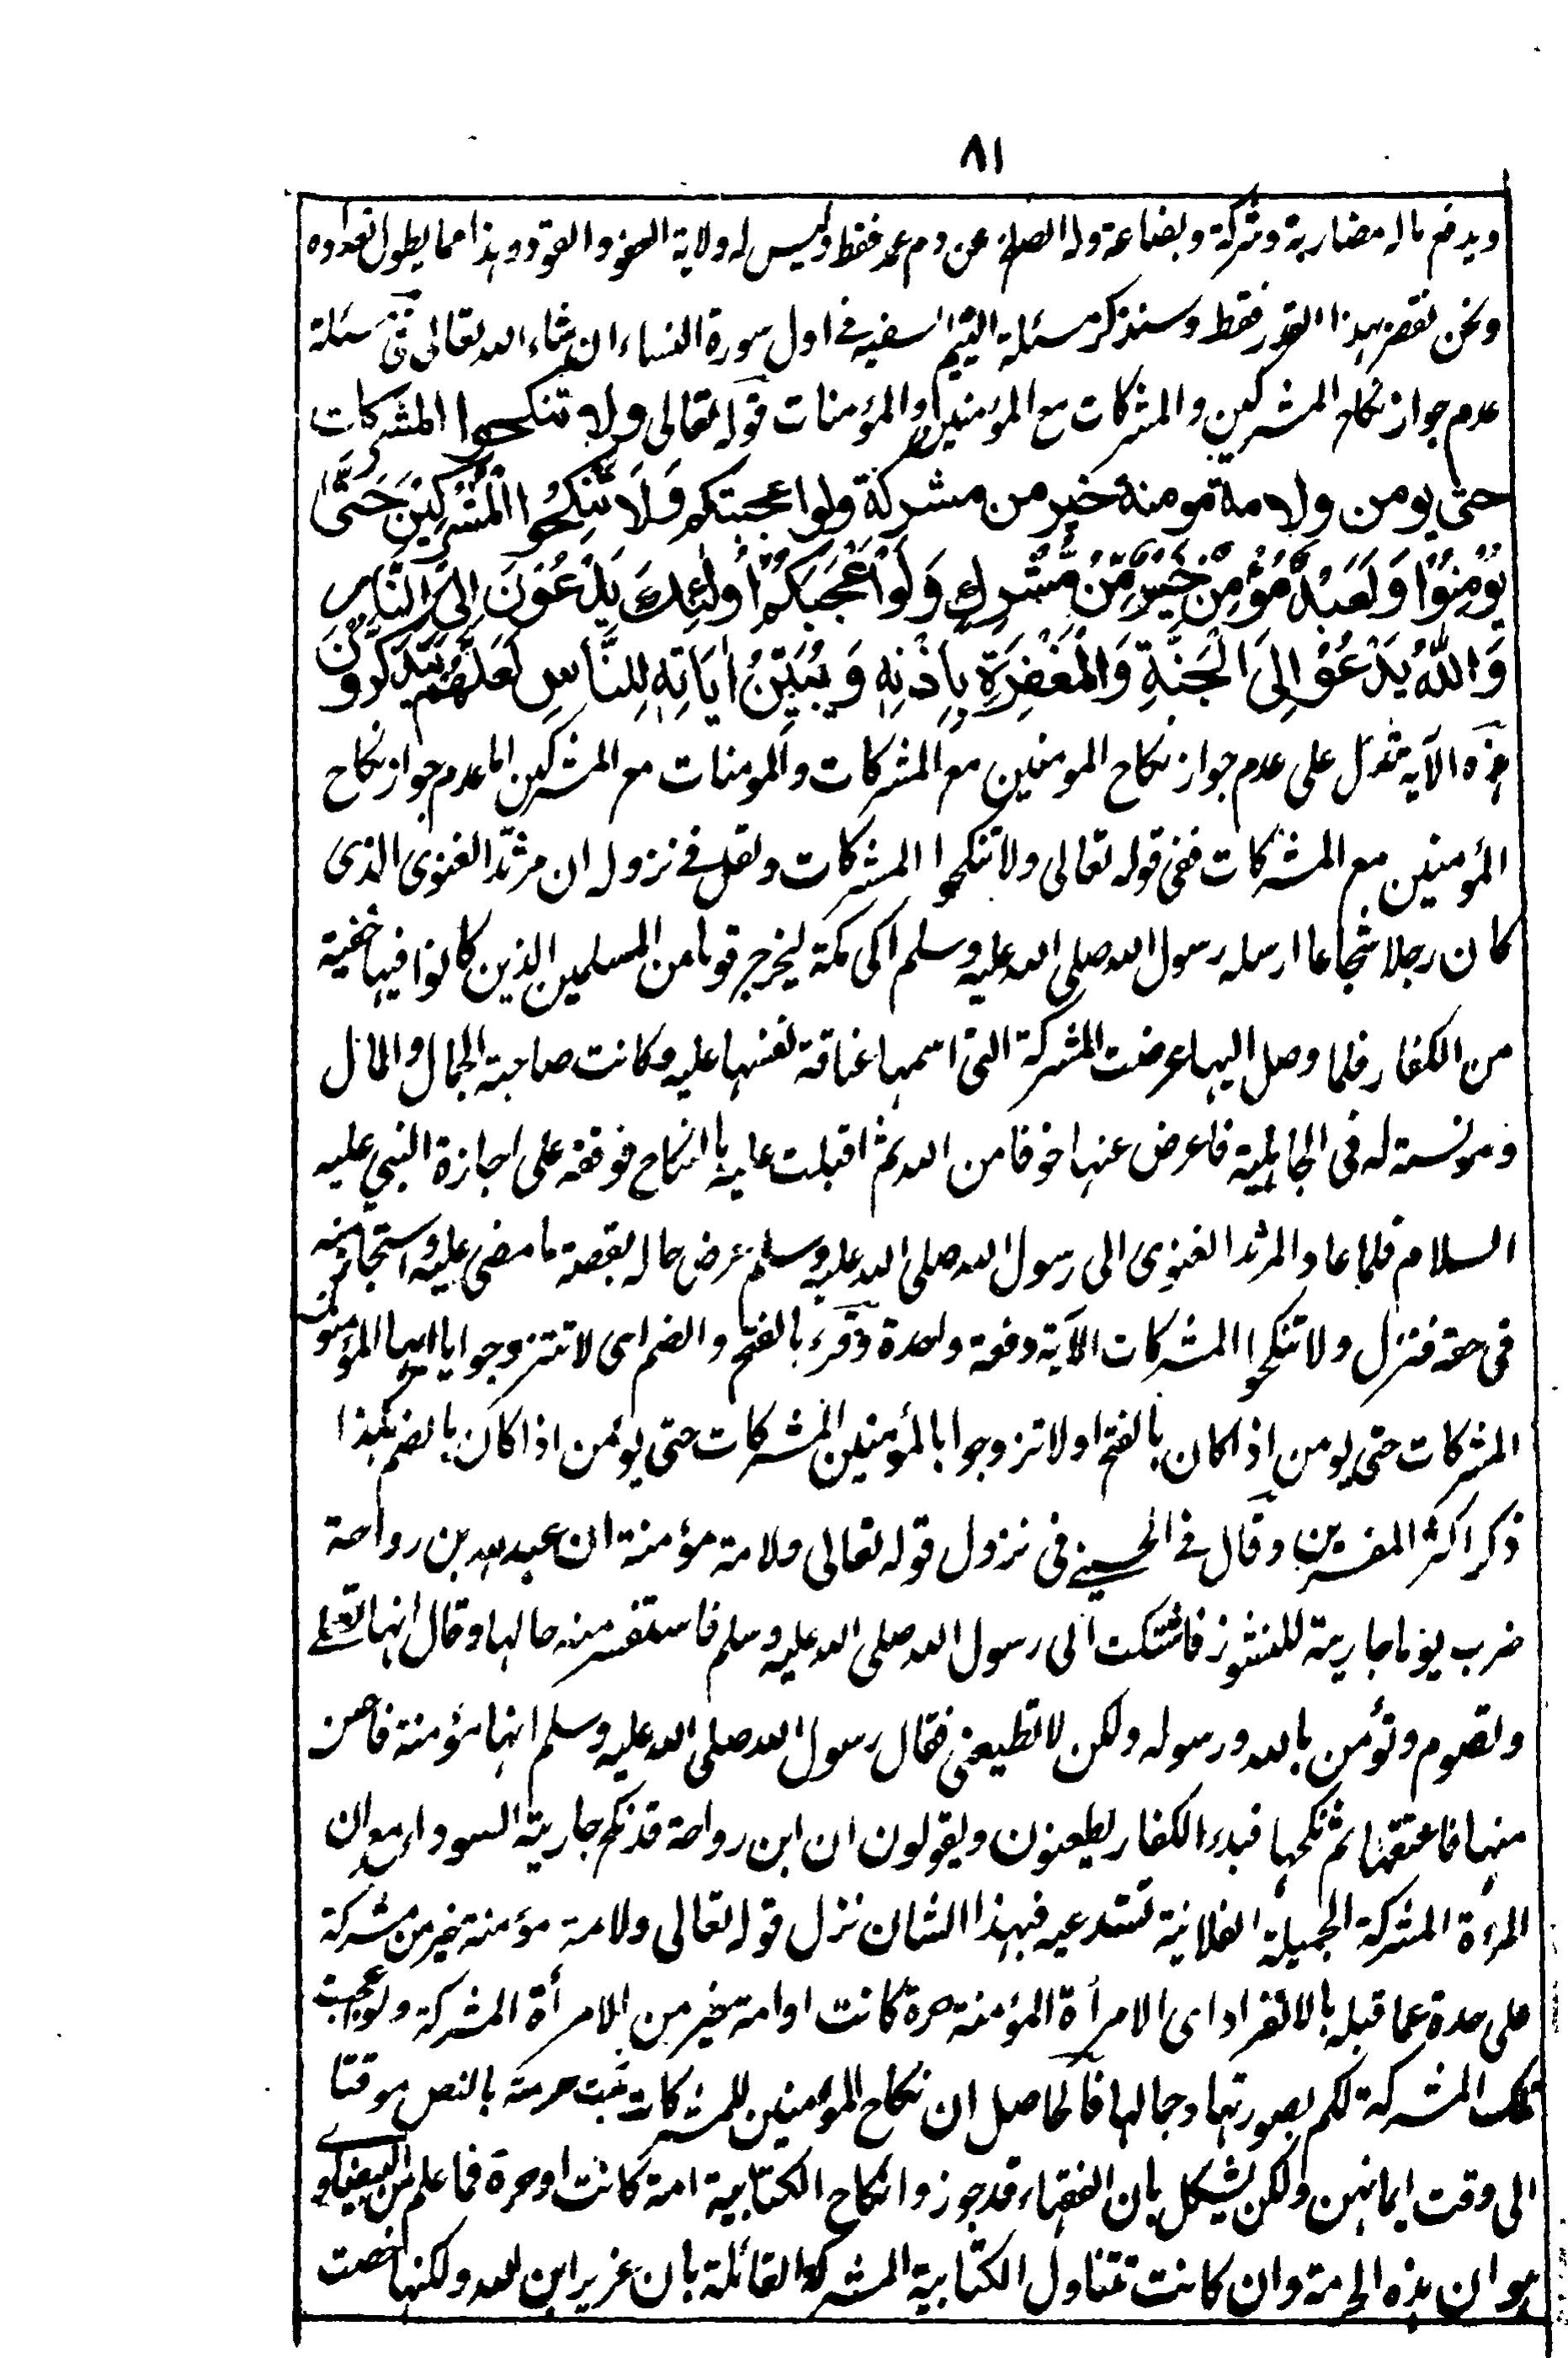 ٨١
ويدفع ماله مضاربة وشركة وبضاعة وله الصلح عن دم عمد فقط وليس له ولاية العفو والقود وهذا مما يطول تعداده
ونحن نقصر بهذا القدر فقط وسنذكر مسئلة اليتيم السفيه فى اول سورة النساء ان شاء الله تعالى فى مسئلة
عدم جواز نكاح المشركين والمشركات مع المؤمنين والمؤمنات قوله تعالى ولا تنكحوا المشركات
حتى يومن ولامة مومنة خير من مشركة ولو اعجبتكم وَلَا تُنْكِحُوا الْمُشْرِكِيْنَ حَتّٰى
يُؤْمِنُوْا وَلَعَبْدٌ مُّؤْمِنٌ خَيْرٌ مِّنْ مُّشْرِكٍ وَّلَوْ اَعْجَبَكُمْ اُولٰئِكَ يَدْعُوْنَ اِلَى النَّارِ
وَاللّٰهُ يَدْعُوْ اِلَى الْجَنَّةِ وَالْمَغْفِرَةِ بِاِذْنِهٖ وَيُبَيِّنُ اٰيَاتِهٖ لِلنَّاسِ لَعَلَّهُمْ يَتَذَكَّرُوْنَ
هذه الآية تدل على عدم جواز نكاح المومنين مع المشركات والمومنات مع المشركين اما عدم جواز نكاح
المؤمنين مع المشركات ففى قوله تعالى ولا تنكحوا المشركات ونقل فى نزوله ان مرثد الغنوى الذى
كان رجلا شجاعا ارسله رسول الله صلى الله عليه وسلم الى مكة ليخرج قوما من المسلمين الذين كانوا فيها خفية
من الكفار فلما وصل اليها عرضت المشركة التى اسمها عناقة نفسها عليه وكانت صاحبة الجمال والمال
ومونسة له فى الجاهلية فاعرض عنها خوفا من الله ثم اقبلت عليه بالنكاح فوقفه على اجازة النبي عليه
السلام فلما عاد المرثد الغنوى الى رسول الله صلى الله عليه وسلم عرض حاله بقصة ما مضى عليه واستجاز منه
فى حقه فنزل ولا تنكحوا المشركات الآية دفعة واحدة وقرء بالفتح والضم اى لا تتزوجوا يا ايها المؤمنون
المشركات حتى يومن اذا كان بالفتح او لا تزوجوا بالمؤمنين المشركات حتى يؤمن اذا كان بالضم هكذا
ذكر اكثر المفسرين وقال فى الحسينى فى نزول قوله تعالى ولامة مؤمنة ان عبد الله بن رواحة
ضرب يوما جارية للنشوز فاشتكت الى رسول الله صلى الله عليه وسلم فاستفسر منه حالها وقال انها تصلى
وتصوم وتؤمن بالله ورسوله ولكن لا تطيعنى فقال رسول الله صلى الله عليه وسلم انها مؤمنة فاحسن
منها فاعتقها ثم نكحها فبدء الكفار يطعنون ويقولون ان ابن رواحة قد نكح جارية السوداء مع ان
المرءة المشركة الجميلة الفلانية تستدعيه فبهذا الشان نزل قوله تعالى ولامة مؤمنة خير من مشركة
على حدة عما قبله بالانفراد اى الامرأة المؤمنة حرة كانت او امة خير من الامرأة المشركة ولو اعجبت
تلك المشركة لكم بصورتها وجمالها فالحاصل ان نكاح المؤمنين للمشركات ثبت حرمته بالنص موقتا
الى وقت ايمانهن ولكن يشكل بان الفقهاء قد جوزوا نكاح الكتابية امة كانت او حرة فما علم من البيضاوى
هو ان هذه الحرمة وان كانت تتناول الكتابية المشركة القائلة بان عزير ابن الله ولكنها خصت